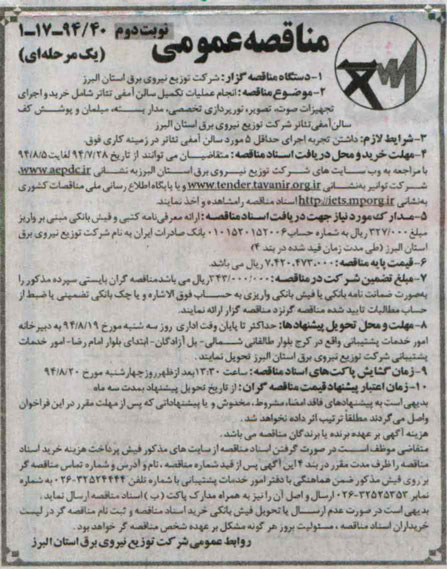 مناقصه عمومی
نوبت دوم ۹۴/۴۰-۱۷-۱
(یک مرحله‌ای)
۱-دستگاه مناقصه گزار: شرکت توزیع نیروی برق استان البرز
۲-موضوع مناقصه: انجام عملیات تکمیل سالن آمفی تئاتر شامل خرید و اجرای
تجهیزات صوت، تصویر، نورپردازی تخصصی، مدار بسته، مبلمان و پوشش کف
سالن آمفی تئاتر شرکت توزیع نیروی برق استان البرز
۳-شرایط لازم: داشتن تجربه اجرای حداقل ۵ مورد سالن آمفی تئاتر در زمینه کاری فوق.
۴-مهلت خرید و محل دریافت اسناد مناقصه: متقاضیان می توانند از تاریخ ۹۴/۷/۲۸ لغایت ۹۴/۸/۵
با مراجعه به وب سایت های شرکت توزیع نیروی برق استان البرز به نشانی www.aepdc.ir،
شرکت توانیر به‌نشانی www.tender.tavanir.org.ir و یا پایگاه اطلاع رسانی ملی مناقصات کشوری
به‌نشانی http://iets.mporg.ir اسناد مناقصه را مشاهده و اخذ نمایند.
۵-مدارک مورد نیاز جهت دریافت اسناد مناقصه: ارائه معرفی‌نامه کتبی و فیش بانکی مبنی بر واریز
مبلغ ۳۲۷/۰۰۰ ریال به شماره حساب ۰۱۰۱۵۲۰۱۵۲۰۰۶ بانک صادرات ایران به نام شرکت توزیع نیروی برق
استان البرز (طی مدت زمان قید شده در بند ۴)
۶-قیمت پایه مناقصه: ۷،۴۲۰،۴۷۳،۰۰۰ ریال می باشد.
۷-مبلغ تضمین شرکت در مناقصه: ۳۴۳/۰۰۰/۰۰۰ ریال می باشد مناقصه گران بایستی سپرده مذکور را
به‌صورت ضمانت نامه بانکی یا فیش بانکی واریزی به حساب فوق الاشاره و یا چک بانکی تضمینی یا ضبط از
حساب مطالبات تایید شده مناقصه گر نزد مناقصه گزار ارائه نمایند.
۸-مهلت و محل تحویل پیشنهادها: حداکثر تا پایان وقت اداری روز سه شنبه مورخ ۹۴/۸/۱۹ به دبیرخانه
امور خدمات پشتیبانی واقع در کرج بلوار طالقانی شمالی- پل آزادگان- ابتدای بلوار امام رضا- امور خدمات
پشتیبانی شرکت توزیع نیروی برق استان البرز تحویل نمایند.
۹-زمان گشایش پاکت‌های اسناد مناقصه: ساعت ۱۳:۳۰ بعد از ظهر روز چهارشنبه مورخ ۹۴/۸/۲۰
۱۰-زمان اعتبار پیشنهاد قیمت مناقصه گران: از تاریخ تحویل پیشنهاد بمدت سه ماه
بدیهی است به پیشنهادهای فاقد امضا، مشروط، مخدوش و یا پیشنهاداتی که پس از مهلت مقرر در این فراخوان
واصل می گردند مطلقا ترتیب اثر داده نخواهد شد.
هزینه آگهی بر عهده برنده یا برندگان مناقصه می باشد.
متقاضی موظف است در صورت گرفتن اسناد مناقصه از سایت های مذکور فیش پرداخت هزینه خرید اسناد
مناقصه را ظرف مدت مقرر در بند ۴ این آگهی پس از قید شماره مناقصه، نام و آدرس و شماره تماس مناقصه گر
بر روی فیش مذکور ضمن هماهنگی با دفتر امور خدمات پشتیبانی با شماره تلفن ۳۲۵۲۴۴۴۴-۰۲۶ به شماره
نمابر ۳۲۵۲۵۳۵۲-۰۲۶ ارسال و اصل آن را نیز به همراه مدارک پاکت (ب) اسناد مناقصه ارسال نماید.
بدیهی است در صورت عدم ارسال یا تحویل فیش بانکی خرید اسناد مناقصه و ثبت نام مناقصه گر در لیست
خریداران اسناد مناقصه، مسئولیت بروز هر گونه مشکل بر عهده شخص مناقصه گر خواهد بود.
روابط عمومی شرکت توزیع نیروی برق استان البرز